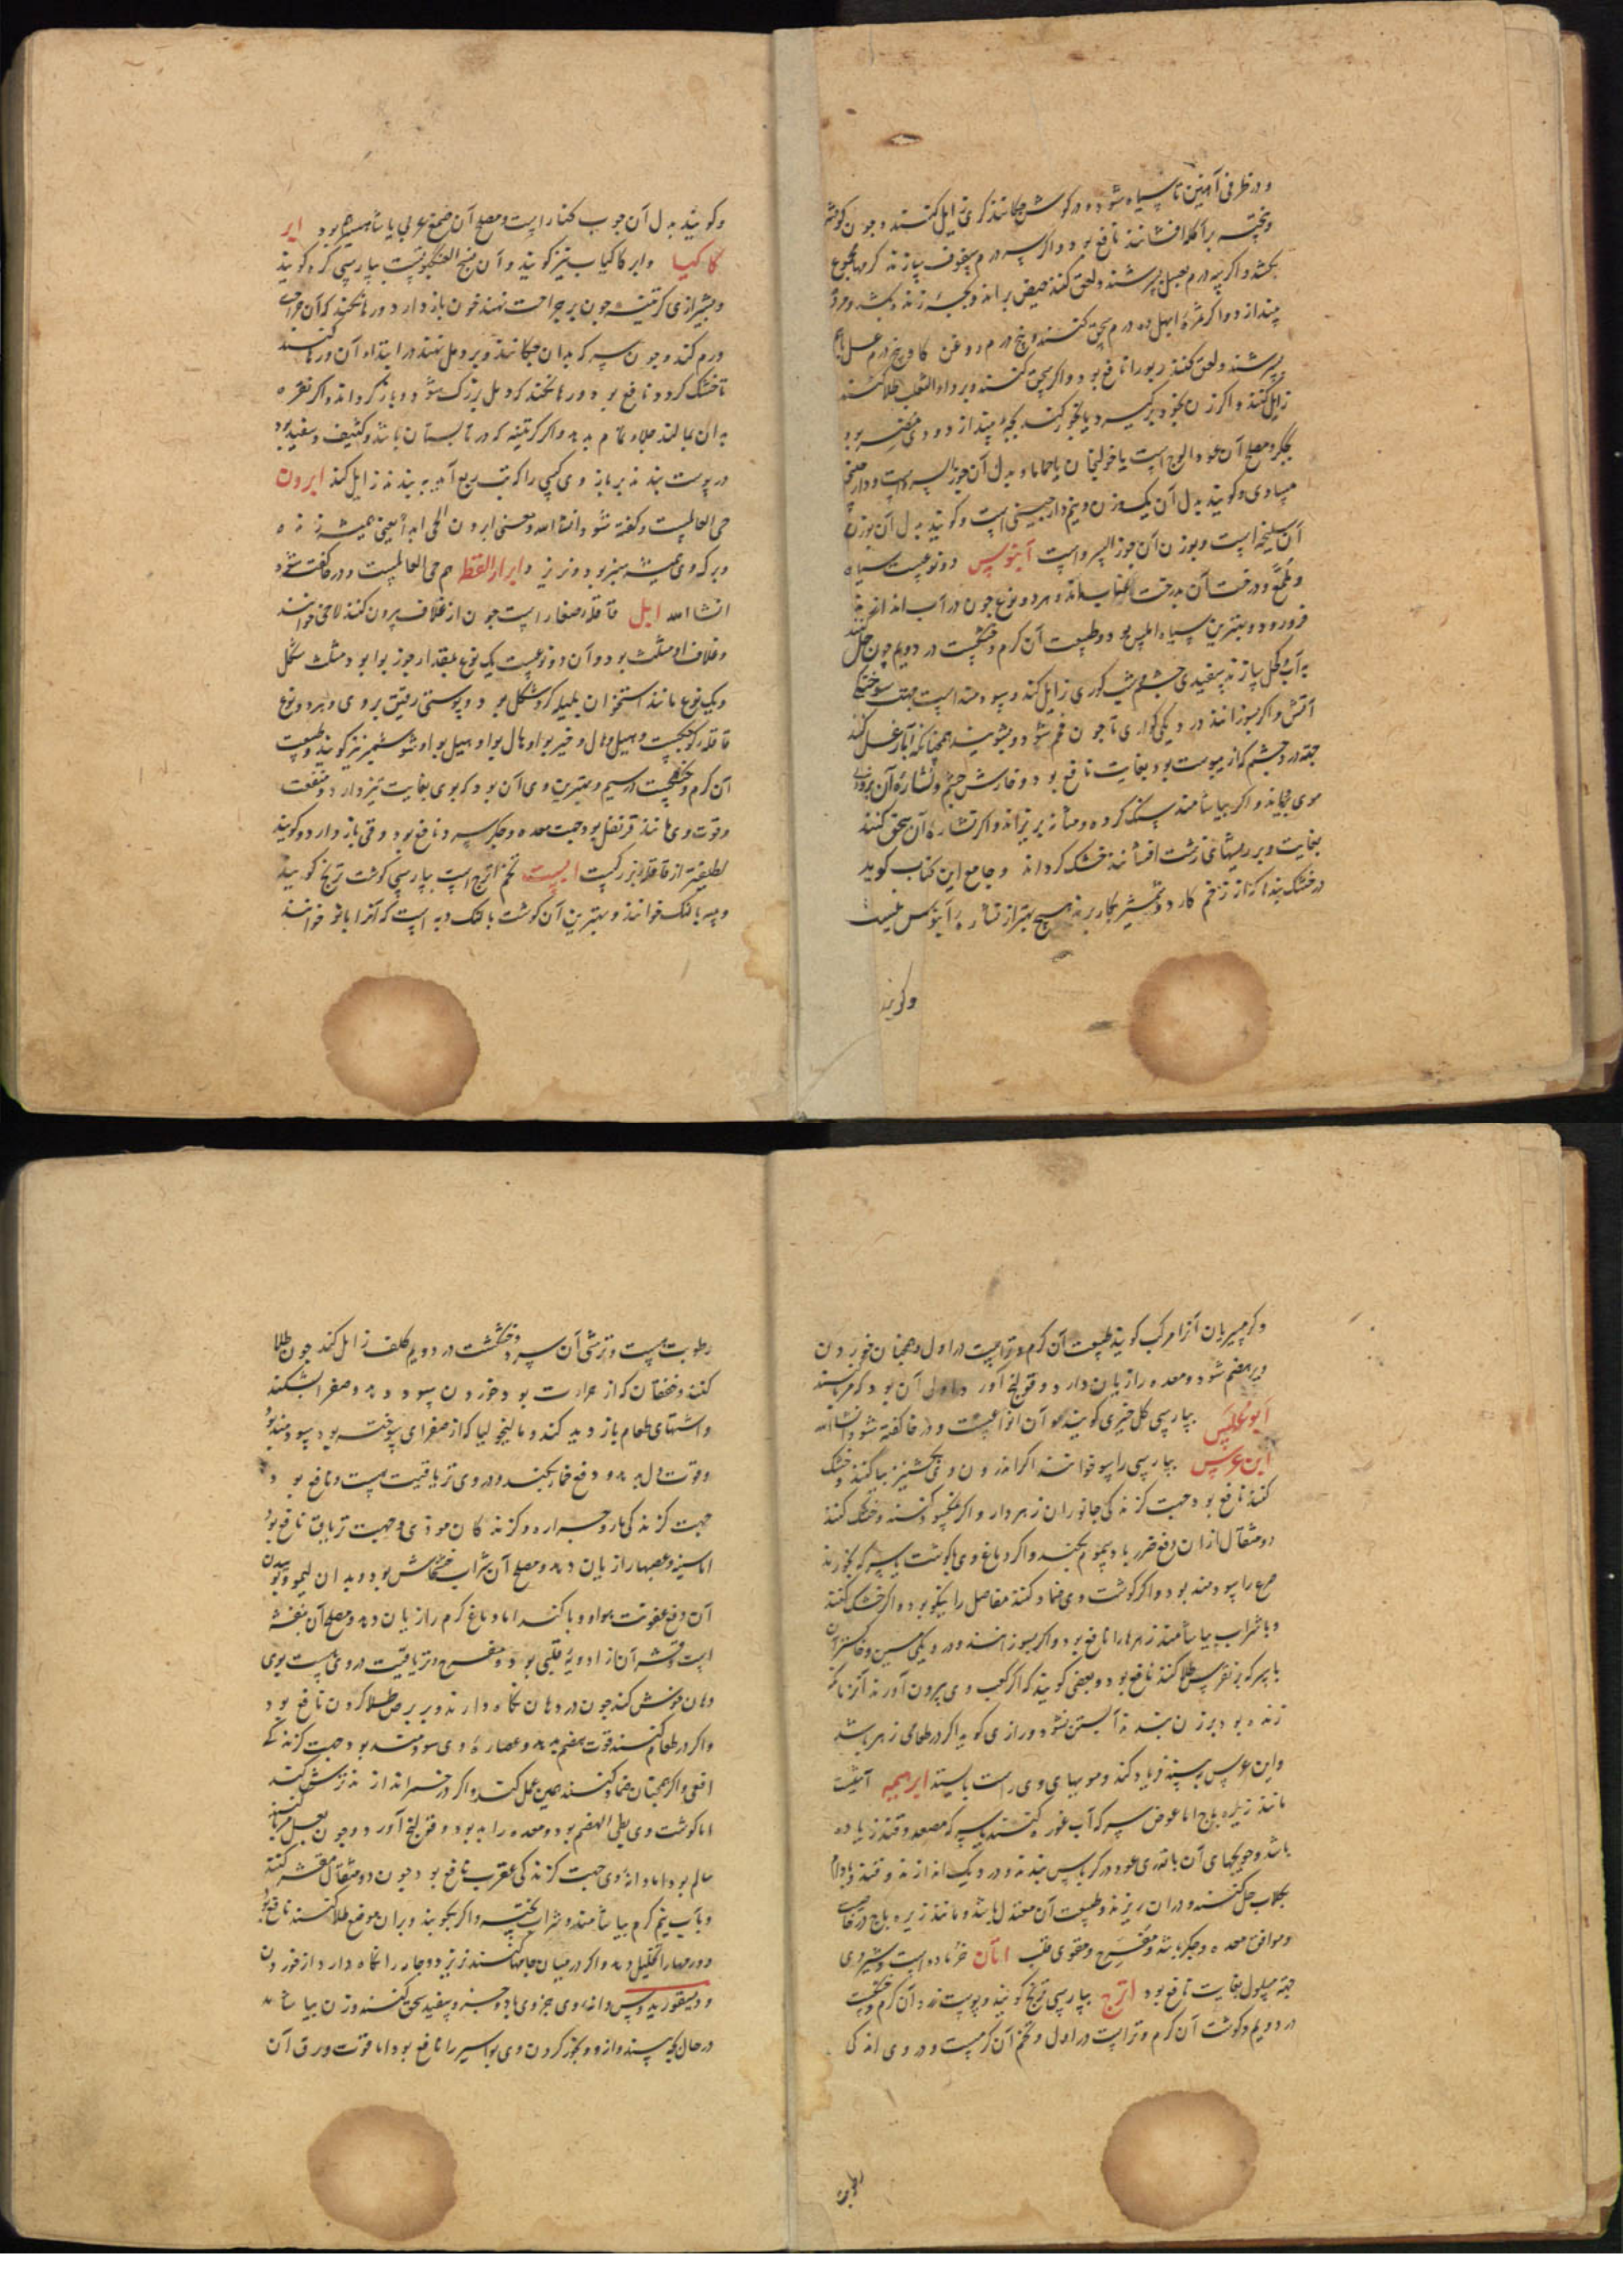 و در ظرفی آهنین تا سیاه شود و در کوش چکانند کری زایل کنند و چون کوفته
و پخته بر آکله افشانند نافع بود و اگر سه درم سفوف سازند کرمها مجموع
بکشد و اگر سه درم بعسل بسرشند و لعق کنند حیض براند و بچهٔ زنده بکشد و مرده
بیندازد و اگر ثمرهٔ ابهل ده درم سحق کنند و پنج درم روغن کاو و پنج درم عسل باهم
بسرشند و لعق کنند ربو را نافع بود و اگر سحق کنند و بر داء الثعلب طلا کنند
زایل کنند و اگر زن بخود برکیرد یا بخور کند بچه بیندازد و وی مضر بود
بجکر و مصلح آن عود الوج است یا خولنجان یا حماما و بدل آن جوز السرو است و دارچینی
مساوی و کویند بدل آن یک وزن و نیم دارچینی است و کویند بدل آن بوزن
آن سلیخه است و بوزن آن جوز السرو است آبنوس دو نوعست سیاه
و ملمع و درخت آن بدرخت عناب ماند و هر دو نوع چون در آب اندازند
فرو رود و بهترین سیاه املس بود و طبیعت آن کرم و خشکست در دویم چون حل کنند
به آب و کحل سازند سفیدی چشم و شب کوری زایل کند و سودمند است جهت سوختکی
آتش و اگر بسوزانند در دیکی کواری تا چون فحم شود و بشویند همچنانکه آبار غسل کنند
جهت درد چشم که از یبوست بود بغایت نافع بود و خارش چشم و نشارهٔ آن بر
موی بچکاند و اگر بیاشامند سنک کرده و مثانه بریزاند و اگر نشارهٔ آن سحق کنند
بغایت و بر ریشهای زشت افشانند خشک کرداند و جامع این کتاب کوید
در خشک بندها که از زخم کارد و شمشیر بکار برند هیچ بهتر از نشارهٔ آبنوس نیست
وکویند
وکویند بدل آن چوب کنار است و مصلح آن صمغ عربی یا نشاسته بود ابر
کاکیا و ابر کاکیاب نیز کویند و آن نسج العنکبوتست بپارسی کره کویند
و بشیرازی کرتینه چون بر جراحت نهند خون باز دارد و رها نکند که آن جراحت
ورم کند و چون بسرکه بدان چکانند و بر دمل نهند در ابتداء آن و رها کنند
تا خشک کردد نافع بود و رها نکند که دمل بزرک شود و باز کرداند و اگر نقره
بدان بمالند جلاء تمام بدهد و اگر کرتینه که در تابستان باشد و کثیف و سفید بود
در پوست بندند بر بازوی کسی را که تب ربع آید ببندند زایل کند ابرون
حی العالمست و کفته شود انشا الله و معنی ابرون الحی ابدا یعنی همیشه زنده
و برک وی همیشه سبز بود و نریزد و ابرار القط هم حی العالمست و در حا کفته شود
انشا الله ابل قاقلهٔ صغار است چون از غلاف بیرون کنند لاحی خوانند
و غلاف او مثلث بود و آن دو نوعست یک نوع بمقدار جوز بوا بود مثلث شکل
و یک نوع مانند استخوان هلیله کرد شکل بود و پوستی رقیق بر وی و هر دو نوع
قاقله کوچکست و هیل و هال و خیر بوا و هال بوا و هیل بوا و شوشمیز نیز کویند و طبیعت
آن کرم و خشکست در سیم و بهترین وی آن بود که بوی بغایت تیز دارد و منفعت
و قوت وی مانند قرنفل بود جهت معده و جکر سرد نافع بود و قی باز دارد و کویند
لطیفتر از قاقلهٔ بزرکست ابست تخم اترج است بپارسی کوشت ترنج کویند
و پیه بالنک خوانند و بهترین آن کوشت بالنک دیه است که آنرا بالو خوانند
و کرمسیریان آنرا مرکب کویند طبیعت آن کرم و تر است در اول و همچنان خوردن
دیر هضم شود و معده را زیان دارد و قولنج آورد و اولی آن بود که مربا
ابوغلس بپارسی کل خیری کویند و آن انواعیست و در خا کفته شود انشا الله
ابن عرس بپارسی راسو خوانند اگر اندرون وی بکشنیز بیاکنند و خشک
کنند نافع بود جهت کزندکی جانوران زهردار و اگر نمکسود کنند و خشک کنند
دو مثقال از آن دفع ضرر باد سموم بکند و اگر دماغ وی با کوشت با سرکه بخورند
صرع را سودمند بود و اگر کوشت وی ضماد کنند مفاصل را نیکو بود و اگر خشک کنند
و با شراب بیاشامند زهرها را نافع بود و اگر بسوزانند در دیکی مسین و خاکستر آن
با سرکه بر نقرس طلا کنند نافع بود و بعضی کویند که اگر کعب وی بیرون آورند آنزمانکه
زنده بود بر زن بندند آبستن نشود و رازی کوید اگر در طعامی زهر باشد
و ابن عرس ببیند فریاد کند و مویهای وی راست بایستد ابرهیمیه آشیست
مانند زیره باج اما عوض سرکه آب غوره کنند یا سرکه مصعد و قند زیاده
باشد و حویجهای آن با قدری عود در کرباس بندند و در دیک اندازند و قند و بادام
بکلاب حل کنند و در آن ریزند و طبیعت آن معتدل باشد و مانند زیره باج در خاصیت
و موافق معده و جکر باشد و مفرح و مقوی قلب اتان خر ماده است و شیر وی
جهت مسلول بغایت نافع بود اترج بپارسی ترنج کویند و پوست زرد آن کرم و خشکست
در دویم و کوشت آن کرم و تر است در اول و تخم آن کرمست و در وی اندکی
رطوبت
رطوبت هست و ترشی آن سرد و خشکست در دویم کلف زایل کند چون طلا
کنند و خفقان که از حرارت بود خوردن سود دهد و صفرا بشکند
و اشتهای طعام باز دید کند و مالیخولیا که از صفرای سوخته بود سودمند بود
و قوت دل بدهد و دفع خمار بکند و در وی تریاقیت هست و نافع بود
جهت کزندکی مار و جراره و کزندکان موذی و جهت تریاق نافع بود
اما سینه و عصبها را زیان دهد و مصلح آن شراب خشخاش بود و بدان لیمو و بوییدن
آن دفع عفونت هوا و وبا کند اما دماغ کرم را زیان دهد و مصلح آن بنفشه
است و قشر آن از ادویهٔ قلبی بود و مفرح و تریاقیت در وی هست بوی
دهان خوش کند چون در دهان نکاه دارند و بر برص طلا کردن نافع بود
و اگر در طعام کنند قوت هضم بدهد و عصارهٔ وی سودمند بود جهت کزندکی
افعی و اگر همچنان ضماد کنند همین عمل کند و اگر در خمر اندازند ترش کند
اما کوشت وی بطی الهضم بود و معده را بد بود و قولنج آورد و چون بعسل مربا کنند
سالم بود اما دانهٔ وی جهت کزندکی عقرب نافع بود چون دو مثقال مقشر کنند
و بآب نیم کرم بیاشامند و شراب پخته و اگر بکوبند و بر آن موضع طلا کنند نافع بود
و ورمها را تحلیل دهد و اگر در میان جامها کنند نریزد و جامه را نکاه دارد از خوردن
و دیسقوریدوس دانهٔ وی جزوی با دو جزو سفید سحق کنند و زن بیاشامد
در حال بچه بیندازد و بخور کردن وی بواسیر را نافع بود اما قوت ورق آن